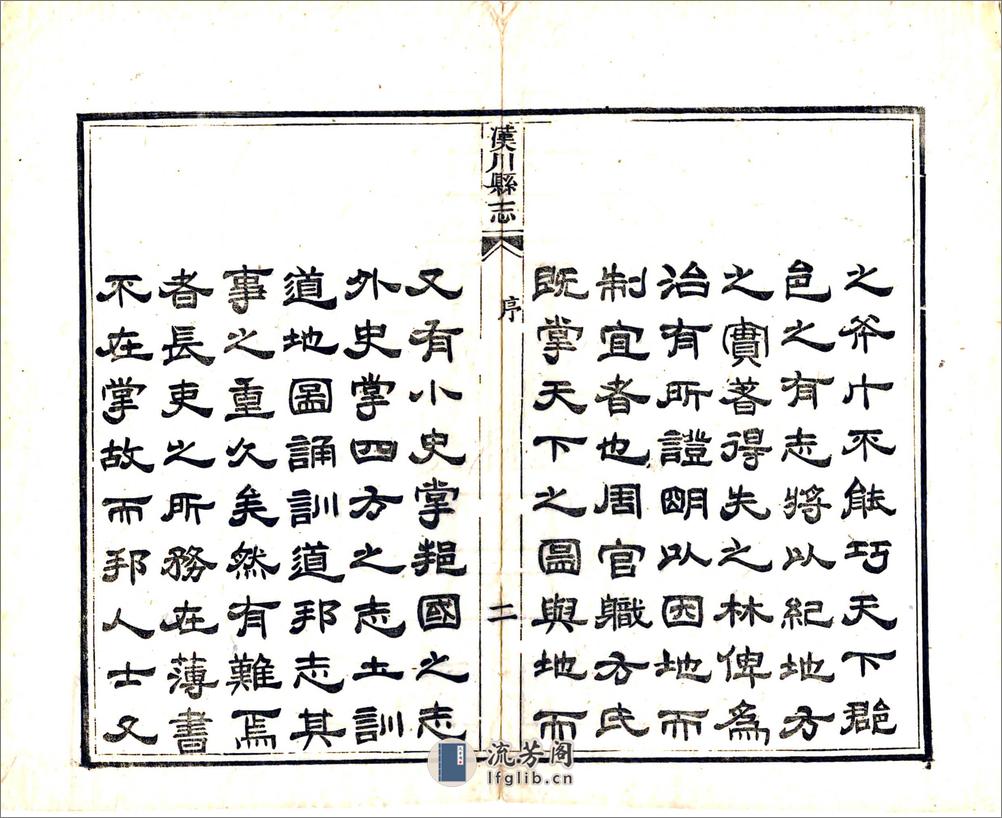 之斧斤不能巧天下郡
邑之有志將以紀地方
之實著得失之林俾為
治有所證明以因地而
制宜者也周官職方氏
既掌天下之圖與地而
漢川縣志
序
二
又有小史掌邦國之志
外史掌四方之志土訓
道地圖誦訓道邦志其
事之重久矣然有難焉
者長吏之所務在薄書
不在掌故而邦人士又
流芳阁
lfglib.cn